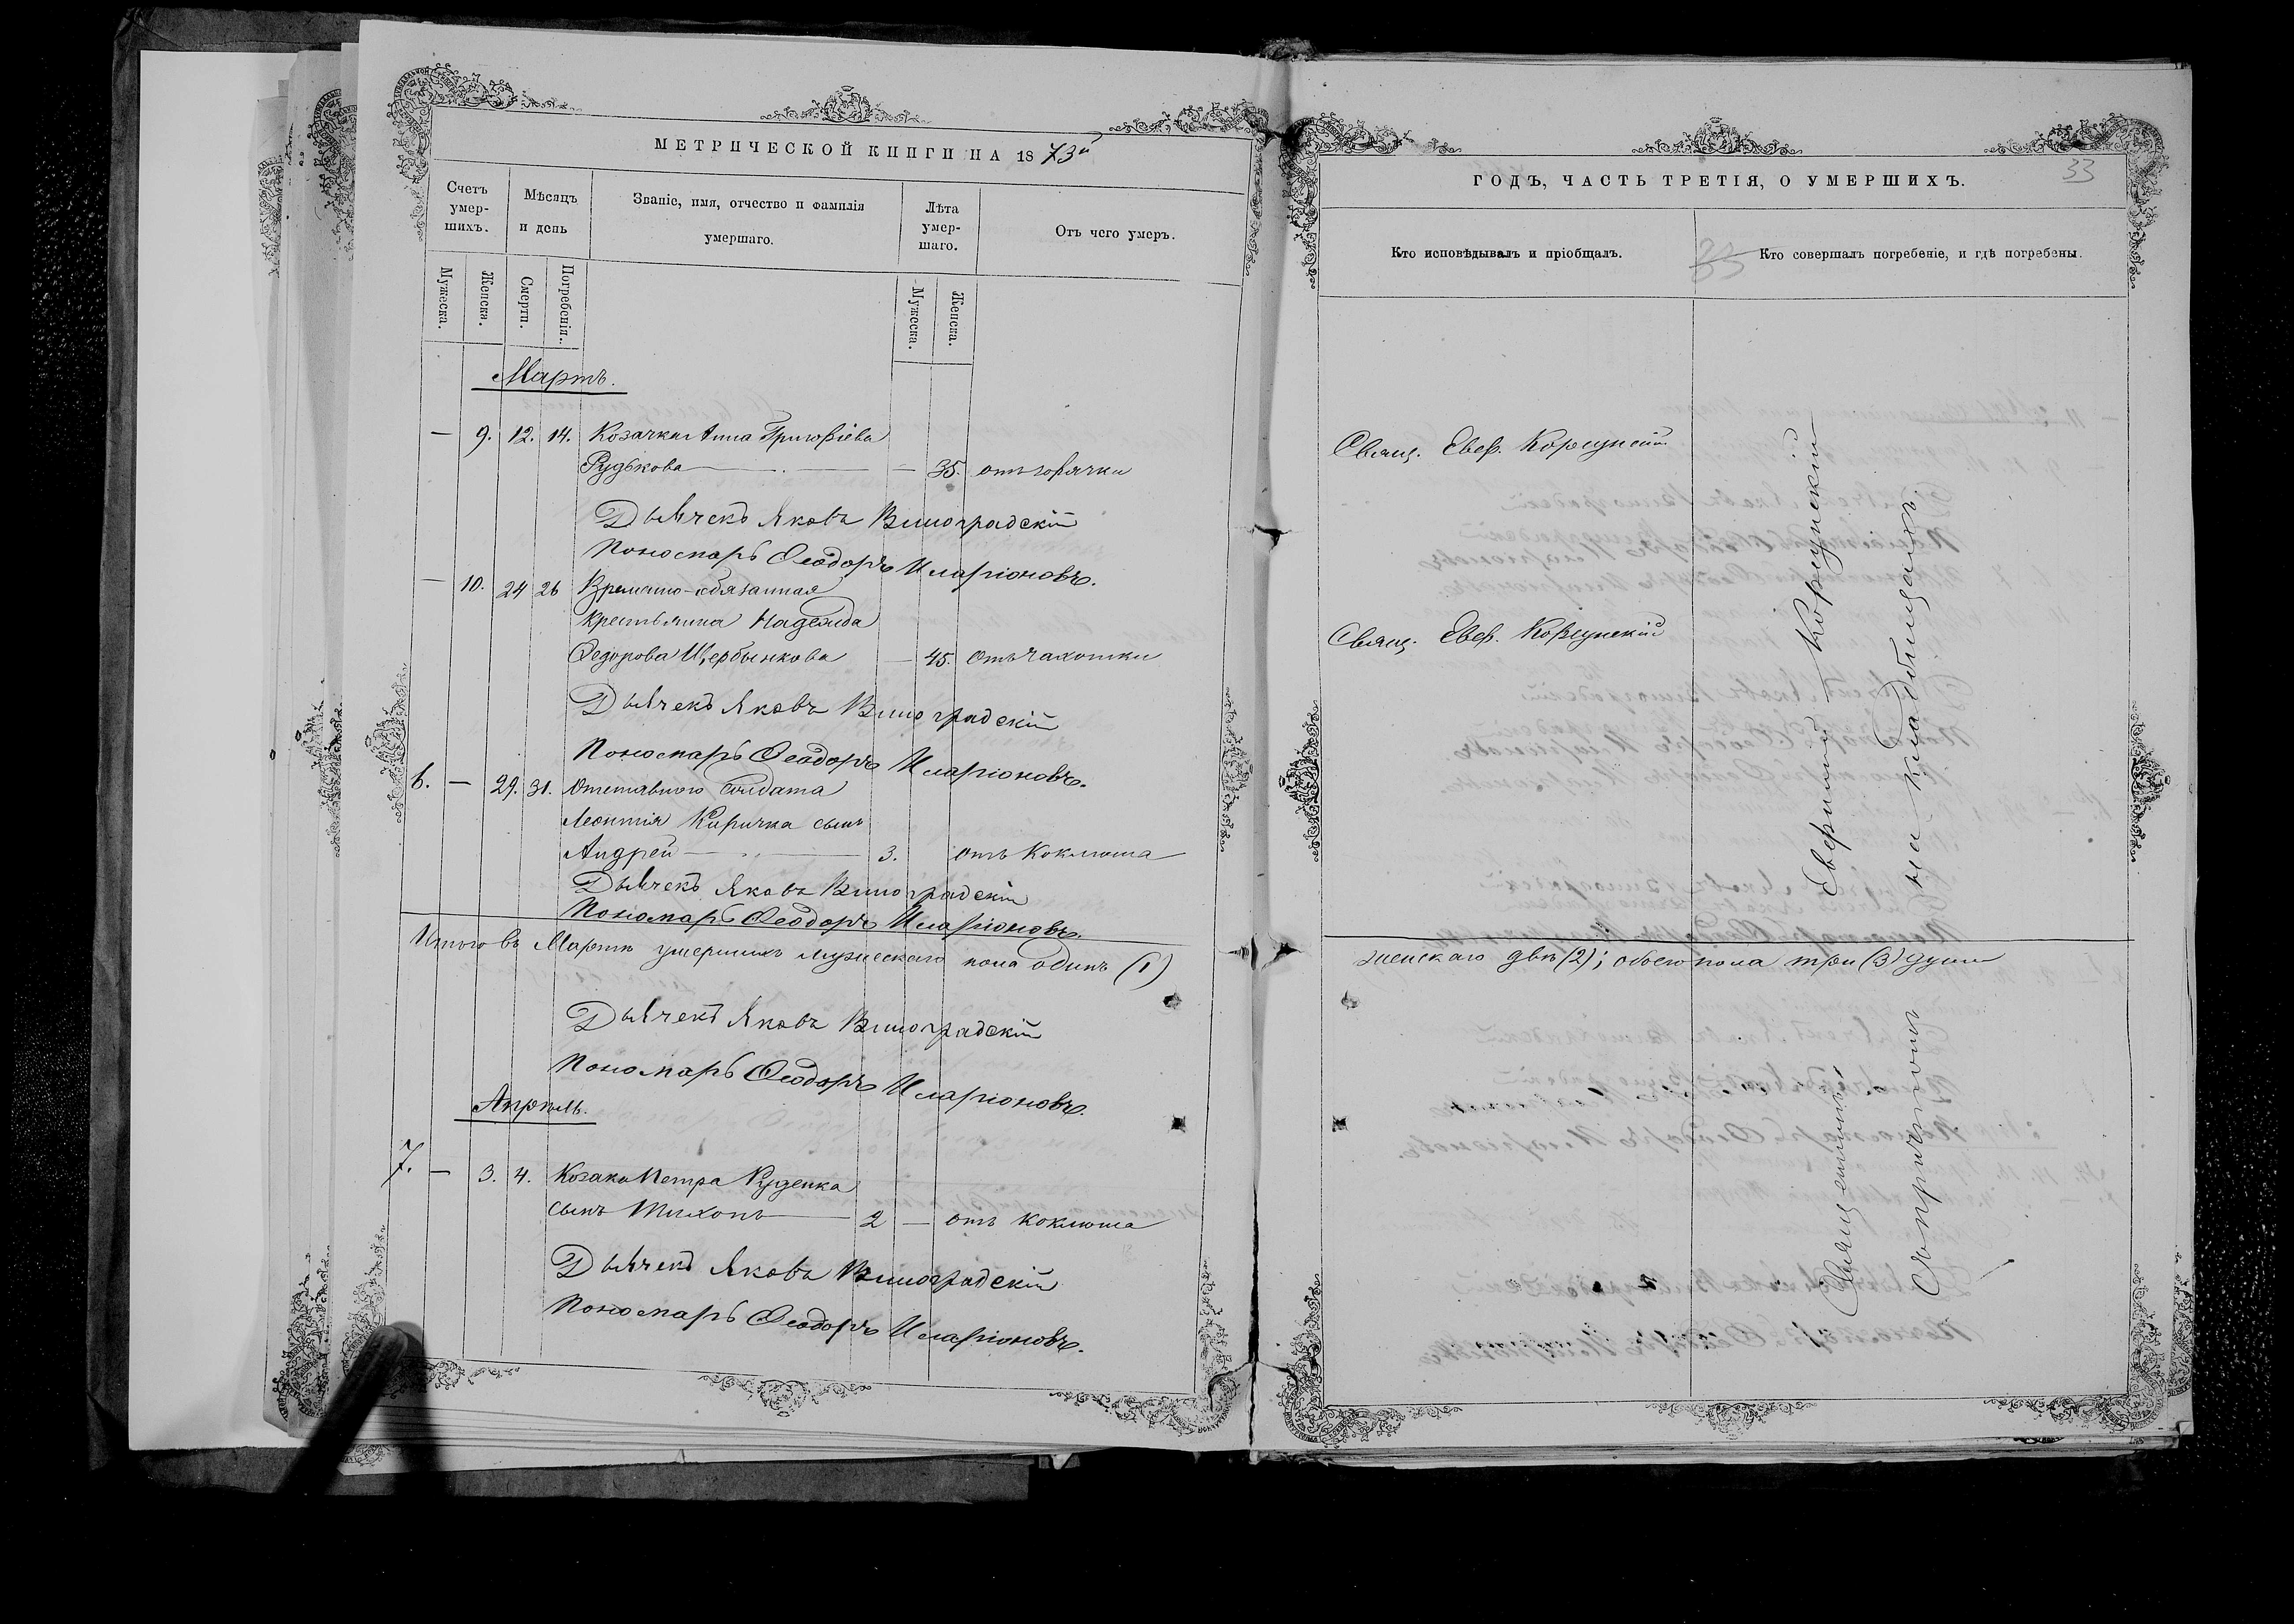 МЕТРИЧЕСКОЙ КНИГИ НА 1873й
Счетъ умер-шихъ.
Мѣсяцъ и день
Званіе, имя, отчество и фамилія умершаго.
Лѣта умер-шаго.
Отъ чего умеръ.
Мужеска.
Женска.
Смерти.
Погребенія.
Мужеска.
Женска.
Мартъ.
— 9. 12. 14. Козачка Анна Григоріева
Рудькова — — 35. отъ горячки
Дьячекъ Яковъ Виноградскій
Пономарь Ѳеодоръ Иларіоновъ.
— 10. 24 26 Временно-обязанная
крестьянка Надежда
Ѳедорова Щербынкова — 45. отъ чахотки
Дьячекъ Яковъ Виноградскій
Пономарь Ѳеодоръ Иларіоновъ.
6. — 29. 31. Отставного солдата
Леонтія Киричка сынъ
Андрей — 3. отъ коклюша
Дьячекъ Яковъ Виноградскій
Пономарь Ѳеодоръ Иларіоновъ.
Итого въ Мартѣ умершихъ мужескаго пола одинъ (1)
Дьячекъ Яковъ Виноградскій
Пономарь Ѳеодоръ Иларіоновъ.
Апрѣль.
7. — 3. 4. Козака Петра Руденка
сынъ Тихонъ — 2 — отъ коклюша
Дьячекъ Яковъ Виноградскій
Пономарь Ѳеодоръ Иларіоновъ.
33
ГОДЪ, ЧАСТЬ ТРЕТІЯ, О УМЕРШИХЪ.
Кто исповѣдывалъ и пріобщалъ.
33
Кто совершалъ погребеніе, и гдѣ погребены.
Свящ. Евф. Корсунскій
Свящ. Евф. Корсунскій
женскаго двѣ (2); обоего пола три (3) души
Священникъ Евфимій Корсунскій
съ причтомъ на кладбищахъ.